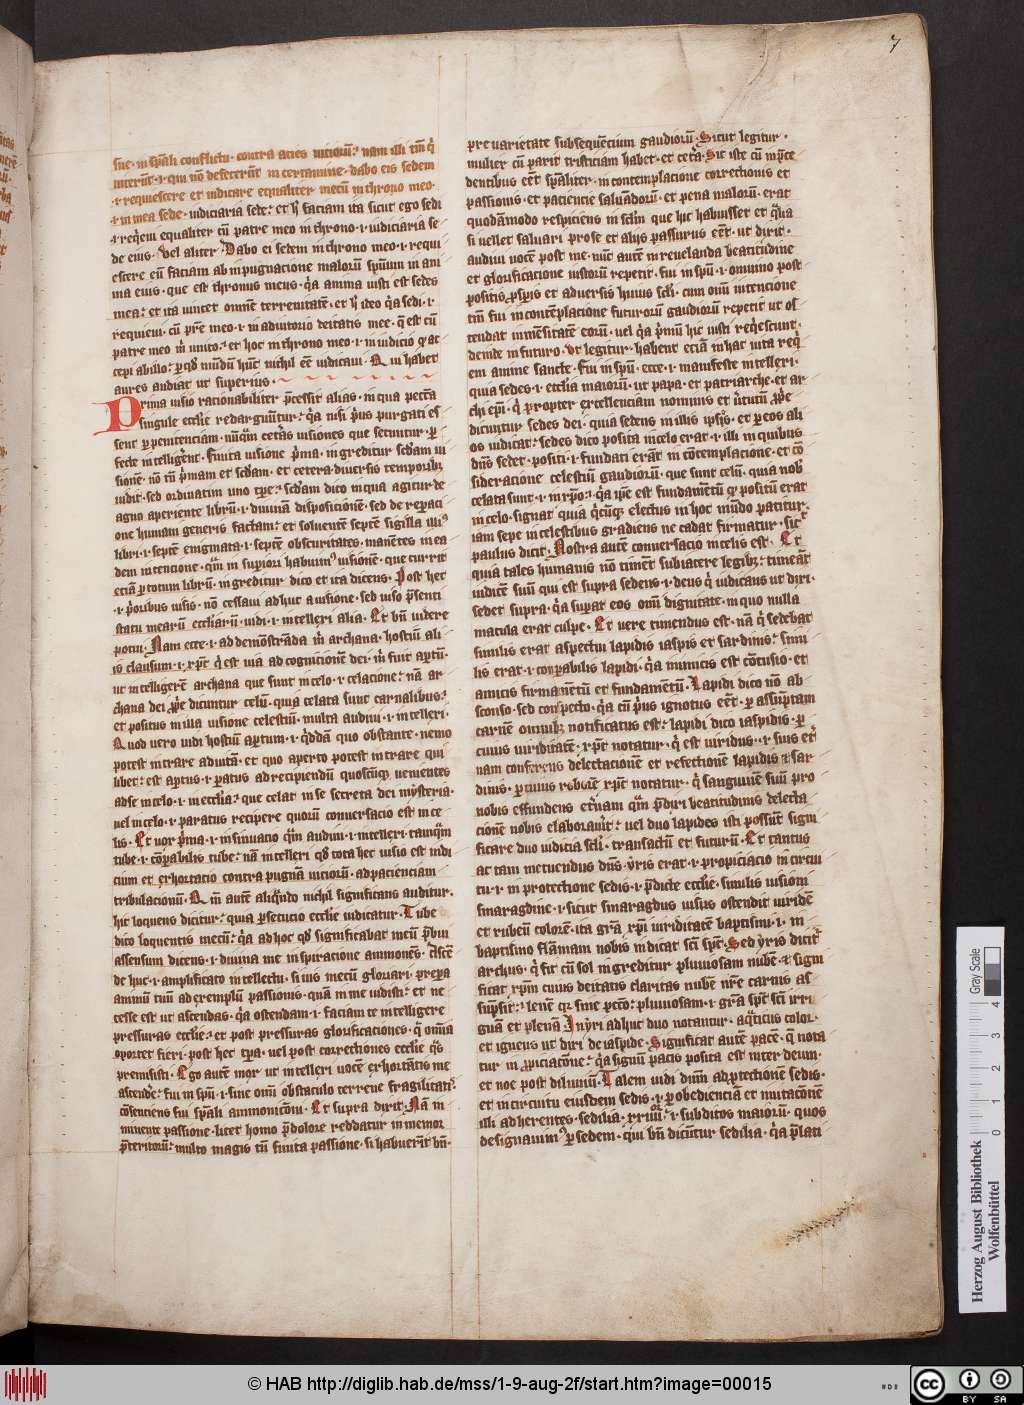 7
sue · in sp̄ali conflictu · contra acies uicioru᷑ : nam illi tm̄ q̇
intrer̄t · ⁊ qui nō defecer̄t in certamine · dabo eis sedem
· ⁊ requiescere et iudicare equaliter mecū in throno meo ·
· ⁊ in mea sede · iudiciaria sede : et h̄ faciam ita sicut ego sedi
⁊ reqeui equaliter cū patre meo in throno · ⁊ iudiciaria se
de eius · Vel aliter Dabo ei sedem in throno meo · ⁊ requi
escere eū faciam ab inpugnacione malorū spūum in ani
ma eius · que est thronus meus · qa anima iusti est sedes
mea : et ita uincet omnē terrenitatē · et h̄ ideo qa sedi · ⁊
requieui · cū pre meo · ⁊ in adiutorio deitatis mee · q̄ est cū
patre meo in unito : et hoc in throno meo · ⁊ in iudicio
cepi ab illo : p qd̄ mūdū huc nichil eē iudicaui · Qui habet
aures audiat ut superius ·
Prima uisio rationabiliter p̄cessit alias · in qua pecc̄a
singule ecclie redarguūtur : qa nisi p̄us purgati es
sent p penitenciam · nūq̄m cetas uisiones que secuntur · p
fecte intelligerent · Finita uisione p̄ma · ingreditur scdam ui
sionē · nō tū p̄mam et scdam · et cetera diuersis temporibꝫ
uidit · sed ordinatim uno tp̄re : scdam dico in qua agitur de
agno aperiente librū · ⁊ diuinā dispositionē · sed de repaci
one humani generis factam : et soluente septē sigilla illi᷒
libri · ⁊ septē enigmata · ⁊ septē obscuritates · manētes in ea
dem intencione · qm̄ in supiori habuim᷒ uisionē · que currit
eciā p totum librū · ingreditur dico et ita dicens · Post hec
· ⁊ p̄oribus uisis · nō cessaui adhuc a uisione · sed uiso p̄senti
statu mearū eccliarū · uidi · ⁊ intelleri alia · Et bn̄ uidere
potui · Nam ecce · ⁊ ad demōstrāda m̄ archana · hostiū ali
is clausum · ⁊ xp̄c q̇ est uia ad cognicionē dei · m̄ fuit aptū ·
ut intelligerē archana que sunt in celo · ⁊ celacione : nā ar
chana dei p̄re dicuntur celū · quia celata sunt carnalibus :
et positus in illa uisione celestiū · multa audiui · ⁊ intelleri ·
Quod uero uidi hostiū aptum · ⁊ qddā quo obstante · nemo
potest intrare ad uitā · et quo aperto potest intrare qui
libet : est aptus · ⁊ patus ad recipiendū quoscūq uenientes
ad se in celo · ⁊ in ecclia : que celat in se secreta dei mysteria ·
uel in celo · ⁊ paratus recipere quorū conuersacio est in ce
lis · Et uox p̄ma · ⁊ insinuacio qm̄ audiui · ⁊ intelleri tamq̄m
tube · ⁊ cōpabilis tube : nā intelleri qd̄ tota hec uisio est indi
cium et exhortacio contra pugnā uiciorū · ad pacienciam
tribulacionū · Qm̄ autē aliqndo nichil significans auditur ·
hic loquens dicitur : quia psecucio ecclie iudicatur · Tube
dico loquentis mecū : qa ad hoc qd̄ significabat meū p̄bui
assensum dicens · ⁊ diuina me inspiracione ammonēs · Ascē
de huc · ⁊ amplificato intellectu · si uis mecū gloriari · prepa
animū tuū ad exemplū passionis · quā in me uidisti : et ne
cesse est ut ascendas · qa ostendam · ⁊ faciam te intelligere
pressuras ecclie : et post pressuras glorificaciones · q̄ omīa
oportet fieri · post hec tp̄a · uel post correctiones ecclie q̄s
premisisti · Ego autē mox ut intelleri uocē exhortātis me
ascende : fui in spū · ⁊ sine omī obstaculo terrene fragilitati᷒
cōsenciens fui sp̄ali ammonicōni · Et supra dixit · Nā in
minente passione · licet homo p̄ dolore reddatur in memor
p̄teritorū : multo magis tn̄ finita passione · si habuerit bn̄ ·
preuarietate subsequēcium gaudiorū · Sicut legitur ·
mulier cū parit tristiciam habet · et cetā · Sic iste cū in p̄ce
dentibus eēt sp̄aliter · in contemplacione correctionis et
passionis · et paciencie saluādorū · et pena malorū · erat
quodāmodo respiciens in sclm̄ que hic habuisset et q̄lia
si uellet saluari pro se et aliis passurus eēt · ut dixit ·
audiui uocē post me · nūc autē in reuelanda beatitudine
et glorificatione iustorū repetit · fui in spū · ⁊ omnino post
positis p̄spis et aduersis huius scli · cum omī intencione
tm̄ fui in contēplacione futurorū gaudiorū repetit ut os
tendat inmēsitatē eorū · uel qa p̄mū hic iusti reqescunt ·
deinde in futuro · Vt legitur · habent eciā in hac uita req̇
em anime sancte · Fui in spū · ecce · ⁊ manifeste intelleri ·
quia sedes · ⁊ ecclia maiorū · ut papa · et patriarche · et ar
chi epi · q̇ propter excellenciam nominis et ūtutū p̄re
dicuntur sedes dei · quia sedens in illis ipsis · et p eos ali
os iudicat : sedes dico posita in celo erat · ⁊ illi in quibus
dn̄s sedet · positi · ⁊ fundati erāt in cōtemplacione · et cō
sideracione celestiū gaudiorū · que sunt celū · quia nob̄
celata sunt · ⁊ in xp̄o : qa ip̄e est fundamētū qd̄ positū erat
in celo · signat quia qcūqꝫ electus in hoc mūdo patitur ·
iam sepe in celestibus gradiens ne cadat firmatur · sic᷒
paulus dicit · Nostra autē conuersacio in celis est · Et
quia tales humanis nō timēt subiacere legibꝫ : timeāt
iudicē suū qui est supra sedens · ⁊ deus q̇ iudicans ut diri ·
sedet supra · qa supat eos omī dignitate · in quo nulla
macula erat culpe · Et uere timendus est · nā q̇ sedebat
similis erat aspectui lapidis iaspis et sardinis : simi
lis erat · ⁊ conpabilis lapidi · qa inimicis est cōtusio · et
amicis firmamētū et fundamētū · Lapidi dico nō ab
sconso · sed conspecto · qa cū p̄us ignotus eēt · p assūptam
carnē omnibꝫ notificatus est : lapidi dico iaspidis · p
cuius uiriditatē · xp̄c notatur · q̇ est uiridis · ⁊ suis et̄
nam conferens delectacionē et refectionē lapidis ⁊ sar
dinis · p cuius ruborē xp̄c notatur · q̇ sanguinē suū pro
nobis effundens et̄nam qm̄ p̄diri beatitudinis delecta
cionē nobis elaborauit : uel duo lapides isti possūt signi
ficare duo iudicia scli · transactū et futurū · Et tantus
ac tam metuendus dn̄s · yris erat · ⁊ propiciacio in circui
tu · ⁊ in protectione sedis · ⁊ p̄dicte ecclie · similis uisioni
smaragdine · ⁊ sicut smaragdus uisus ostendit uiridē
et rubeū colorē · ita gra xp̄i uiriditatē baptismi · ⁊ in
baptismo flāmam nobis indicat sci spc̄ · Sed yris dicit᷒
archus · q̇ fit cū sol ingreditur pluuiosam nubē · ⁊ signi
ficat xp̄m cuius deitatis claritas nubē nr̄e carnis as
sūpsit : lenē qꝫ sine pecco : pluuiosam · ⁊ gra spc̄ sci irri
guā et plenā · In yri adhuc duo notantur · aqticus color ·
et igneus ut diri de iaspide · Significat autē pacē · q̄ nota
tur in ppiciacōne : qa signū pacis posita est inter deum ·
et noe post diluuiū · Talem uidi dn̄m ad ptectionē sedis ·
et in circuitu eiusdem sedis · ⁊ p obedienciā et imitacōnē
illi adherentes · sedilia · xxiiii · ⁊ subditos maiorū · quos
designauim᷒ p sedem · qui bn̄ dicūtur sedilia · qa p̄lati
Gray Scale
0 1 2 3 4
Herzog August Bibliothek
Wolfenbüttel
© HAB http://diglib.hab.de/mss/1-9-aug-2f/start.htm?image=00015
cc BY SA